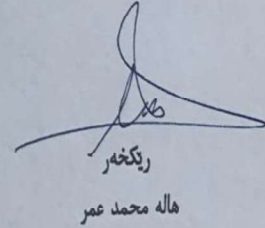 ڕێکخەر
هاله محمد عمر